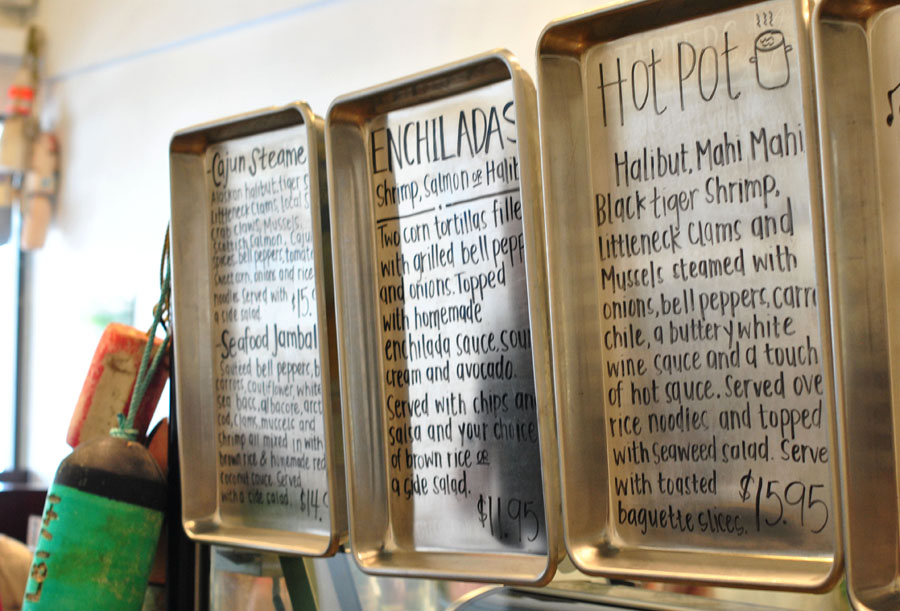 -Cajun Steame
Alaskan halibut, tiger S
littleneck clams, local S
crab claws, Mussels,
Scottish Salmon, Cajun
spices, bell peppers, tomato
Sweet corn, onions and rice
noodles. Served with
a side salad. $15.
-Seafood Jambal
Sauteed bell peppers, b
carrots, cauliflower, white
sea bass, albacore, arct
cod, clams, mussels and
shrimp all mixed in with
brown rice & homemade red
coconut sauce. Served
with a side salad. $14.
ENCHILADAS
Shrimp, Salmon or Halib
Two corn tortillas fille
with grilled bell pepp
and onions. Topped
with homemade
enchilada sauce, sour
cream and avocado.
Served with chips an
salsa and your choice
of brown rice or
a side salad.
$11.95
Hot Pot
Halibut, Mahi Mahi
Black tiger Shrimp,
littleneck clams and
Mussels steamed with
onions, bell peppers, carr
chile, a buttery white
wine sauce and a touch
of hot sauce. Served ove
rice noodles and topped
with seaweed salad. Serve
with toasted $15.95
baguette slices.